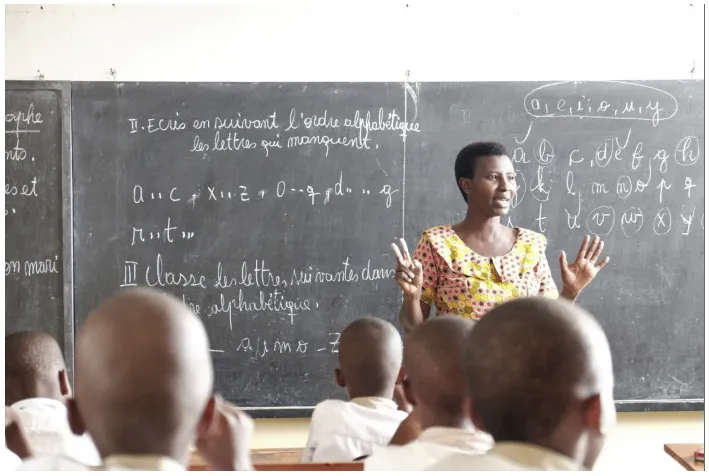 aphe
nts.
es et
on mari
II. Ecris en suivant l'ordre alphabétique
les lettres qui manquent.
a .. c + x .. z + o .. q + d .. .. g
r .. t ...
III Classe les lettres suivantes dans
dre alphabétique.
a, e, i, o, u, y
a b c d e f g h
k l m n o p q
t u v w x y